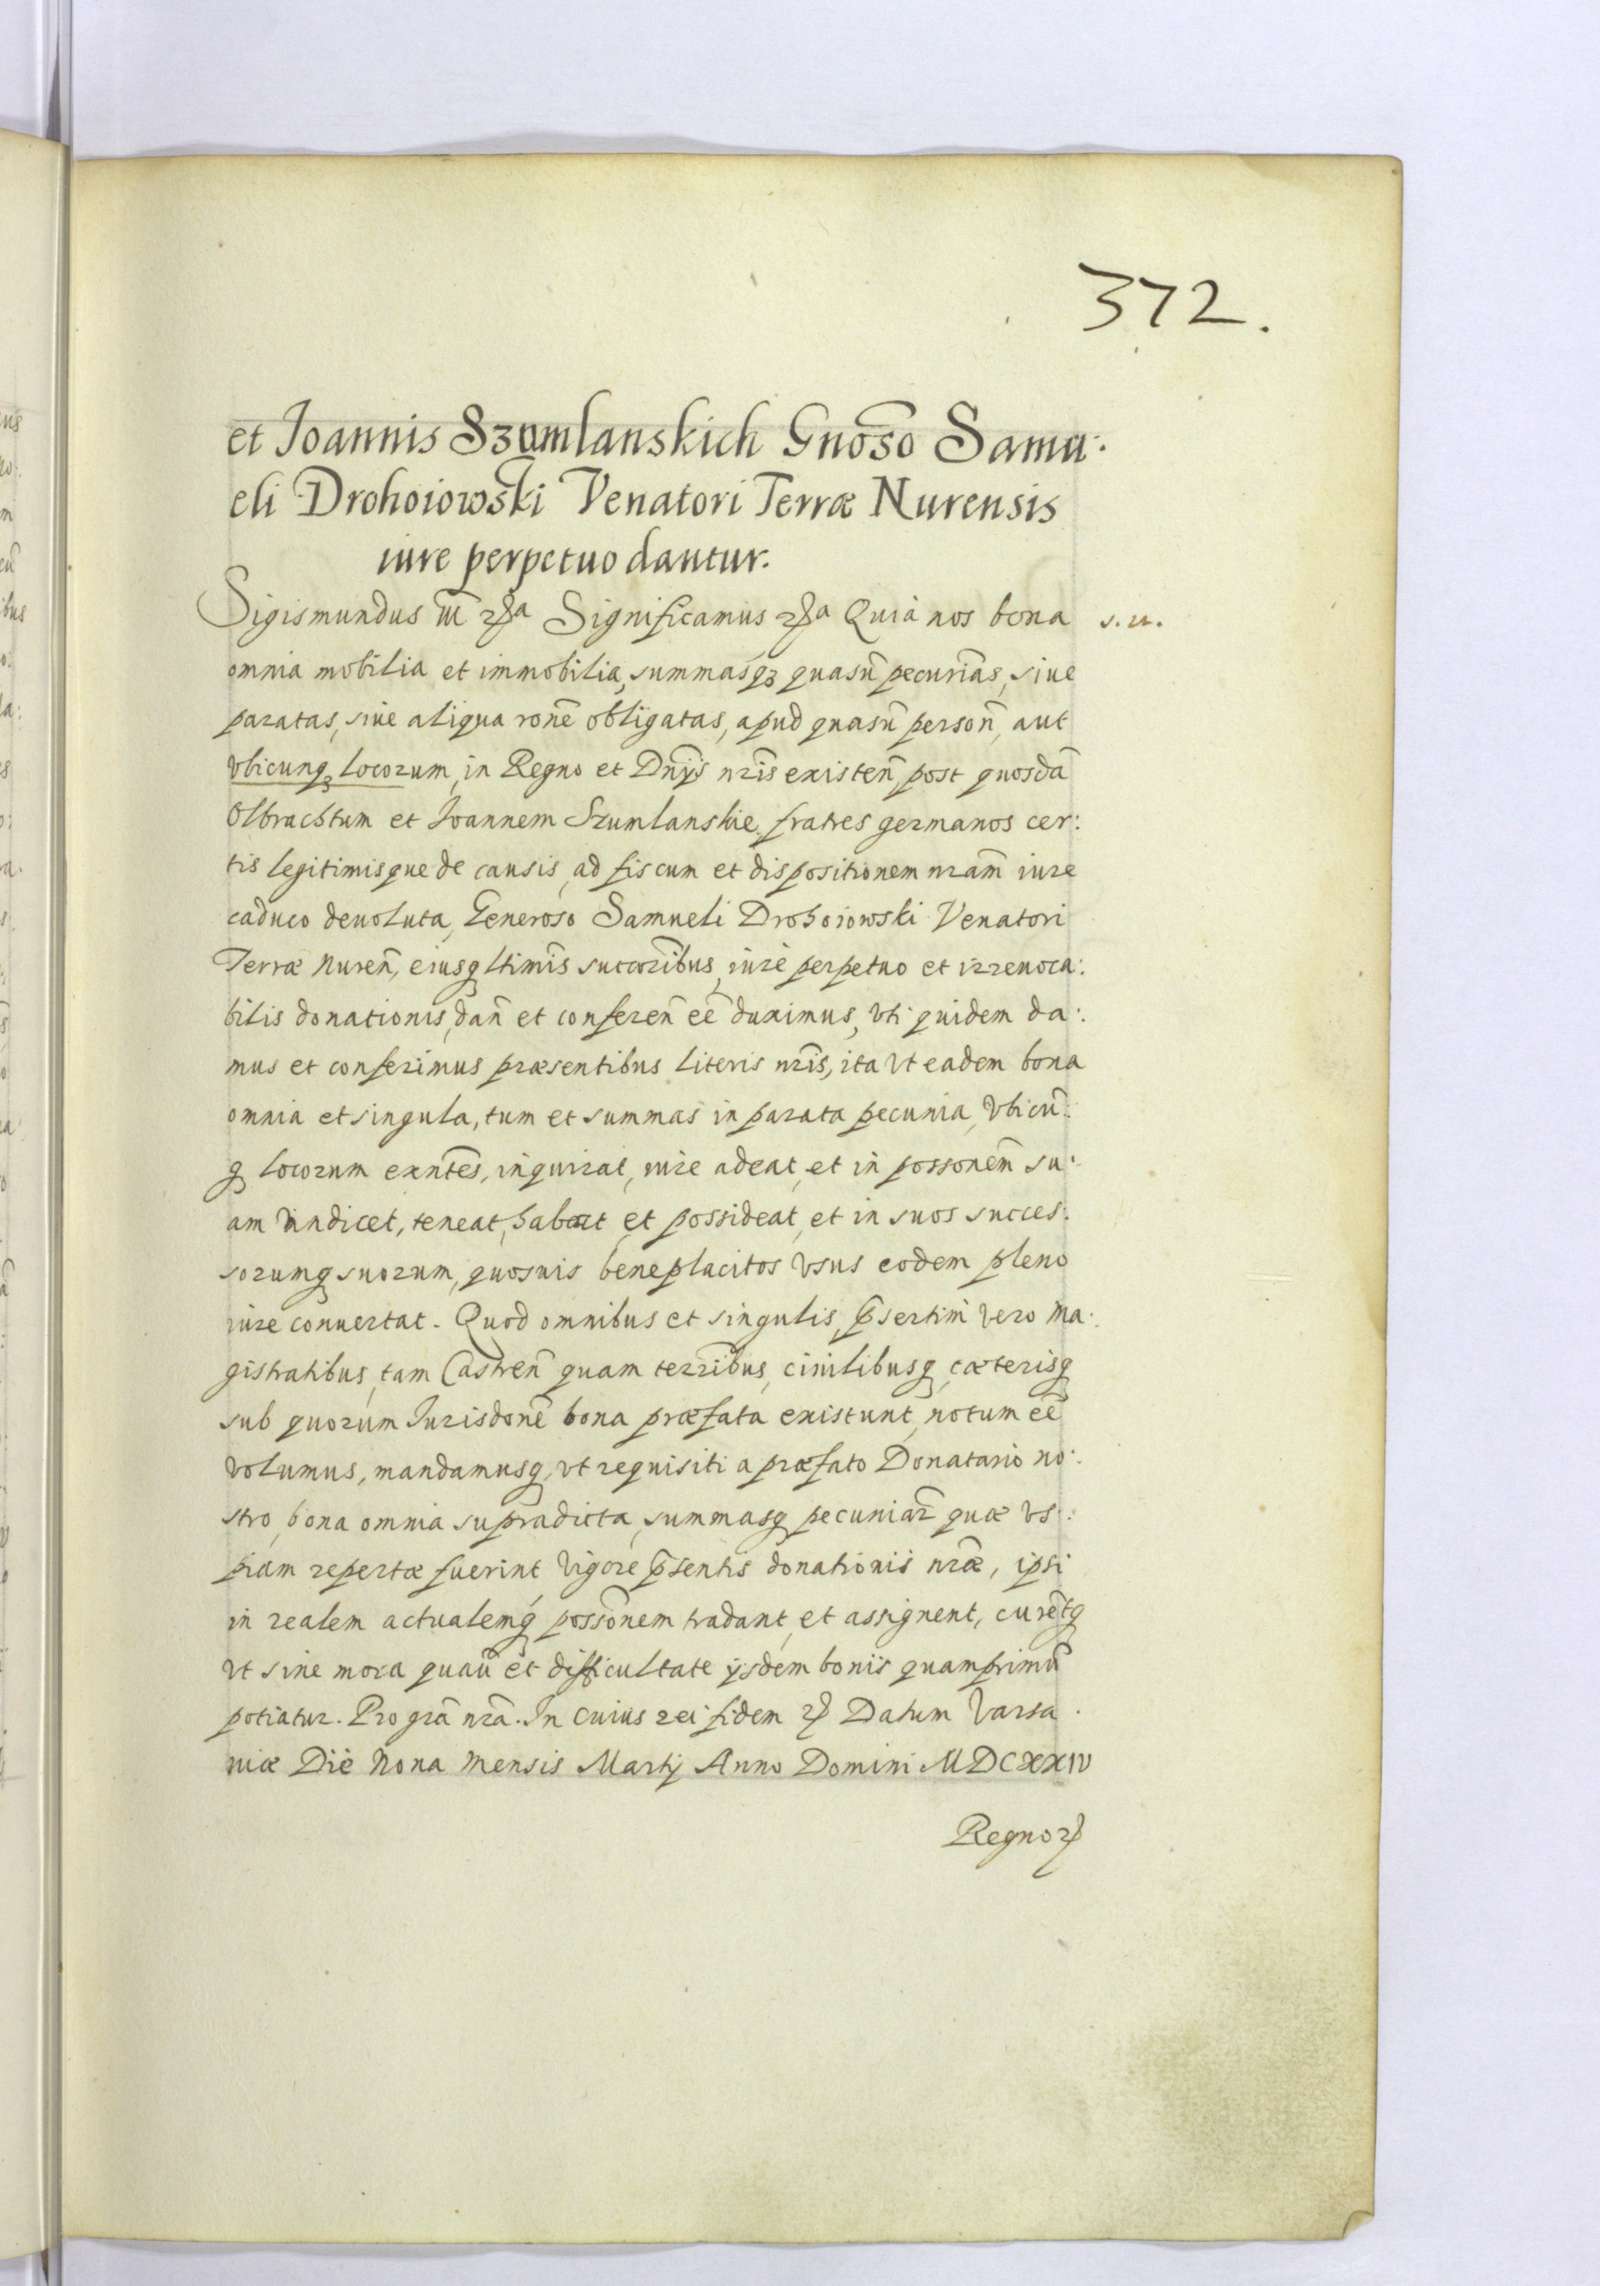 372.
et Joannis Szumlanskich Gnōso Samu:
eli Drohoiowski Venatori Terræ Nurensis
iure perpetuo dantur.
Sigismundus III etca Significamus etca Quia nos bona s. u.
omnia mobilia et immobilia, summasqꝫ quasū pecunias, siue
paratas, siue aliqua ronē obligatas, apud quasū person̄, aut
vbicunqꝫ locorum, in Regno et Dn̄ijs nr̄is existen̄, post quosdā
Olbrachtum et Joannem Szumlanskie fratres germanos cer:
tis legitimisque de causis, ad fiscum et dispositionem nram̄ iure
caduco deuoluta, Generoso Samueli Drohoiowski Venatori
Terræ Nuren̄, eiusqꝫ ltimīs succoribus̄, iure perpetuo et irreuoca:
bilis donationis, dan̄ et conferen̄ eē duximus, vti quidem da:
mus et conferimus præsentibus literis nr̄is, ita vt eadem bona
omnia et singula, tum et summas in parata pecunia, vbicū:
qꝫ locorum exntēs, inquirat, iure adeat, et in possonēm su:
am vindicet, teneat, habeat, et possideat, et in suos succes:
sorumqꝫ suorum, quosuis beneplacitos vsus eodem pleno
iure conuertat. Quod omnibus et singulis, p̄sertim vero Ma:
gistratibus, tam Castren̄ quam terrībus, ciuilibusqꝫ, cæterisqꝫ
sub quorum Jurisdonē bona præfata existunt, notum eē
volumus, mandamusqꝫ, vt requisiti a præfato Donatario no:
stro, bona omnia supradicta, summasqꝫ pecuniar̄ quæ vs:
piam repertæ fuerint vigore p̄sentis donationis nrǣ, ipsi
in realem actualemqꝫ possōnem tradant, et assignent, curētqꝫ
vt sine mora quauī et difficultate ijsdem bonis quamprimū
potiatur. Pro grā nrā. In cuius rei fidem etc Datum Varsa:
uiæ Die Nona Mensis Martij Anno Domini MDCXXIV
Regnor